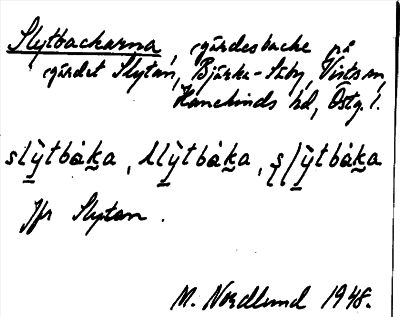 Slytbackarna, gärdesbacke på
gärdet Slytan, Bjärka-Säby, Vists sn,
Hanekinds hd, Östg. l.
slỳ̠tbàka̠, llỳ̠tbàka̠, slỳ̠tbàka̠
Jfr Slytan.
M. Nordlund 1948.